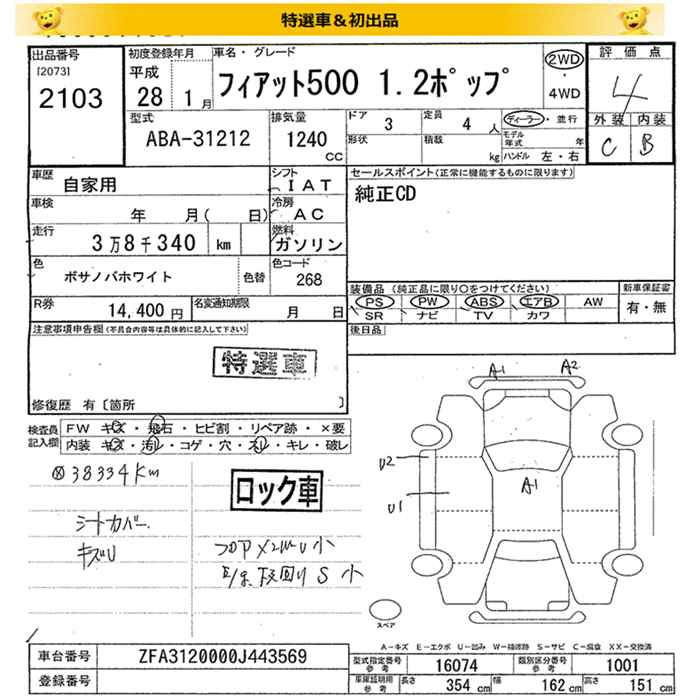 特選車＆初出品
出品番号
[2073]
2103
初度登録年月
平成
28 1月
車名・グレード
フィアット500 1.2ポップ
2WD
・
4WD
評価点
4
型式
ABA-31212
排気量
1240
CC
ドア 3
定員 4 人
形状
積載 kg
ディーラー・並行
モデル年式 年
ハンドル 左・右
外装 内装
C B
車歴 自家用
シフト IAT
車検 年 月( 日)
冷房 AC
走行 3万8千340 km
燃料 ガソリン
色 ボサノバホワイト 色替
色コード 268
R券 14,400円
名変通知期限 月 日
セールスポイント(正常に機能するものに限ります)
純正CD
装備品 (純正品に限り○をつけてください)
PS PW ABS エアB AW
SR ナビ TV カワ
新車保証書
有・無
後日品
注意事項申告欄(不具合内容等は具体的に記入して下さい)
特選車
修復歴 有〔箇所 〕
検査員記入欄
FW キズ・飛石・ヒビ割・リペア跡・×要
内装 キズ・汚レ・コゲ・穴・スレ・キレ・破レ
38334Km
シートカバー
キズU
ロック車
フロア×2 U 小
下回り S 小
A1 A2
U2
U1
A1
スペア
A−キズ E−エクボ U−凹み W−補修跡 S−サビ C−腐食 XX−交換済
車台番号 ZFA3120000J443569
登録番号
型式指定番号 参考 16074
類別区分番号 参考 1001
車庫証明用 参考 長さ 354 cm 幅 162 cm 高さ 151 cm